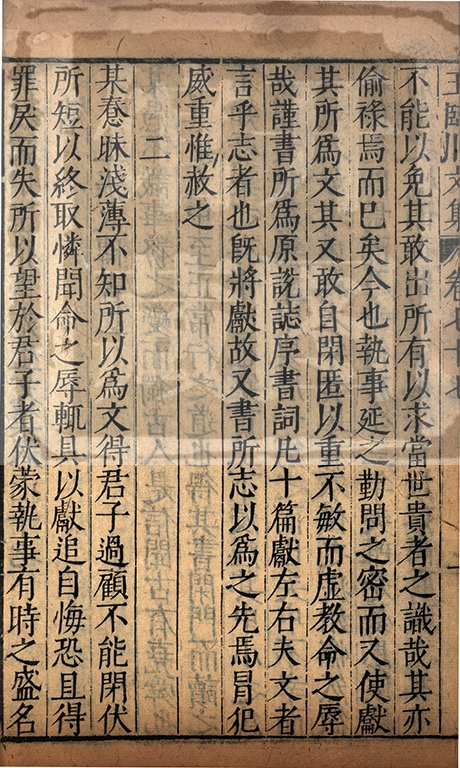 王臨川文集 卷七十七
不能以免其敢出所有以求當世貴者之識哉其亦
偷祿焉而已矣今也執事延之勤問之密而又使獻
其所爲文其又敢自閉匿以重不敏而虛教命之辱
哉謹書所爲原說誌序書詞凡十篇獻左右夫文者
言乎志者也旣將獻故又書所志以爲之先焉冒犯
威重惟赦之
二
某惷昧淺薄不知所以爲文得君子過顧不能閉伏
所短以終取憐聞命之辱輒具以獻追自悔恐且得
罪戾而失所以望於君子者伏蒙執事有時之盛名